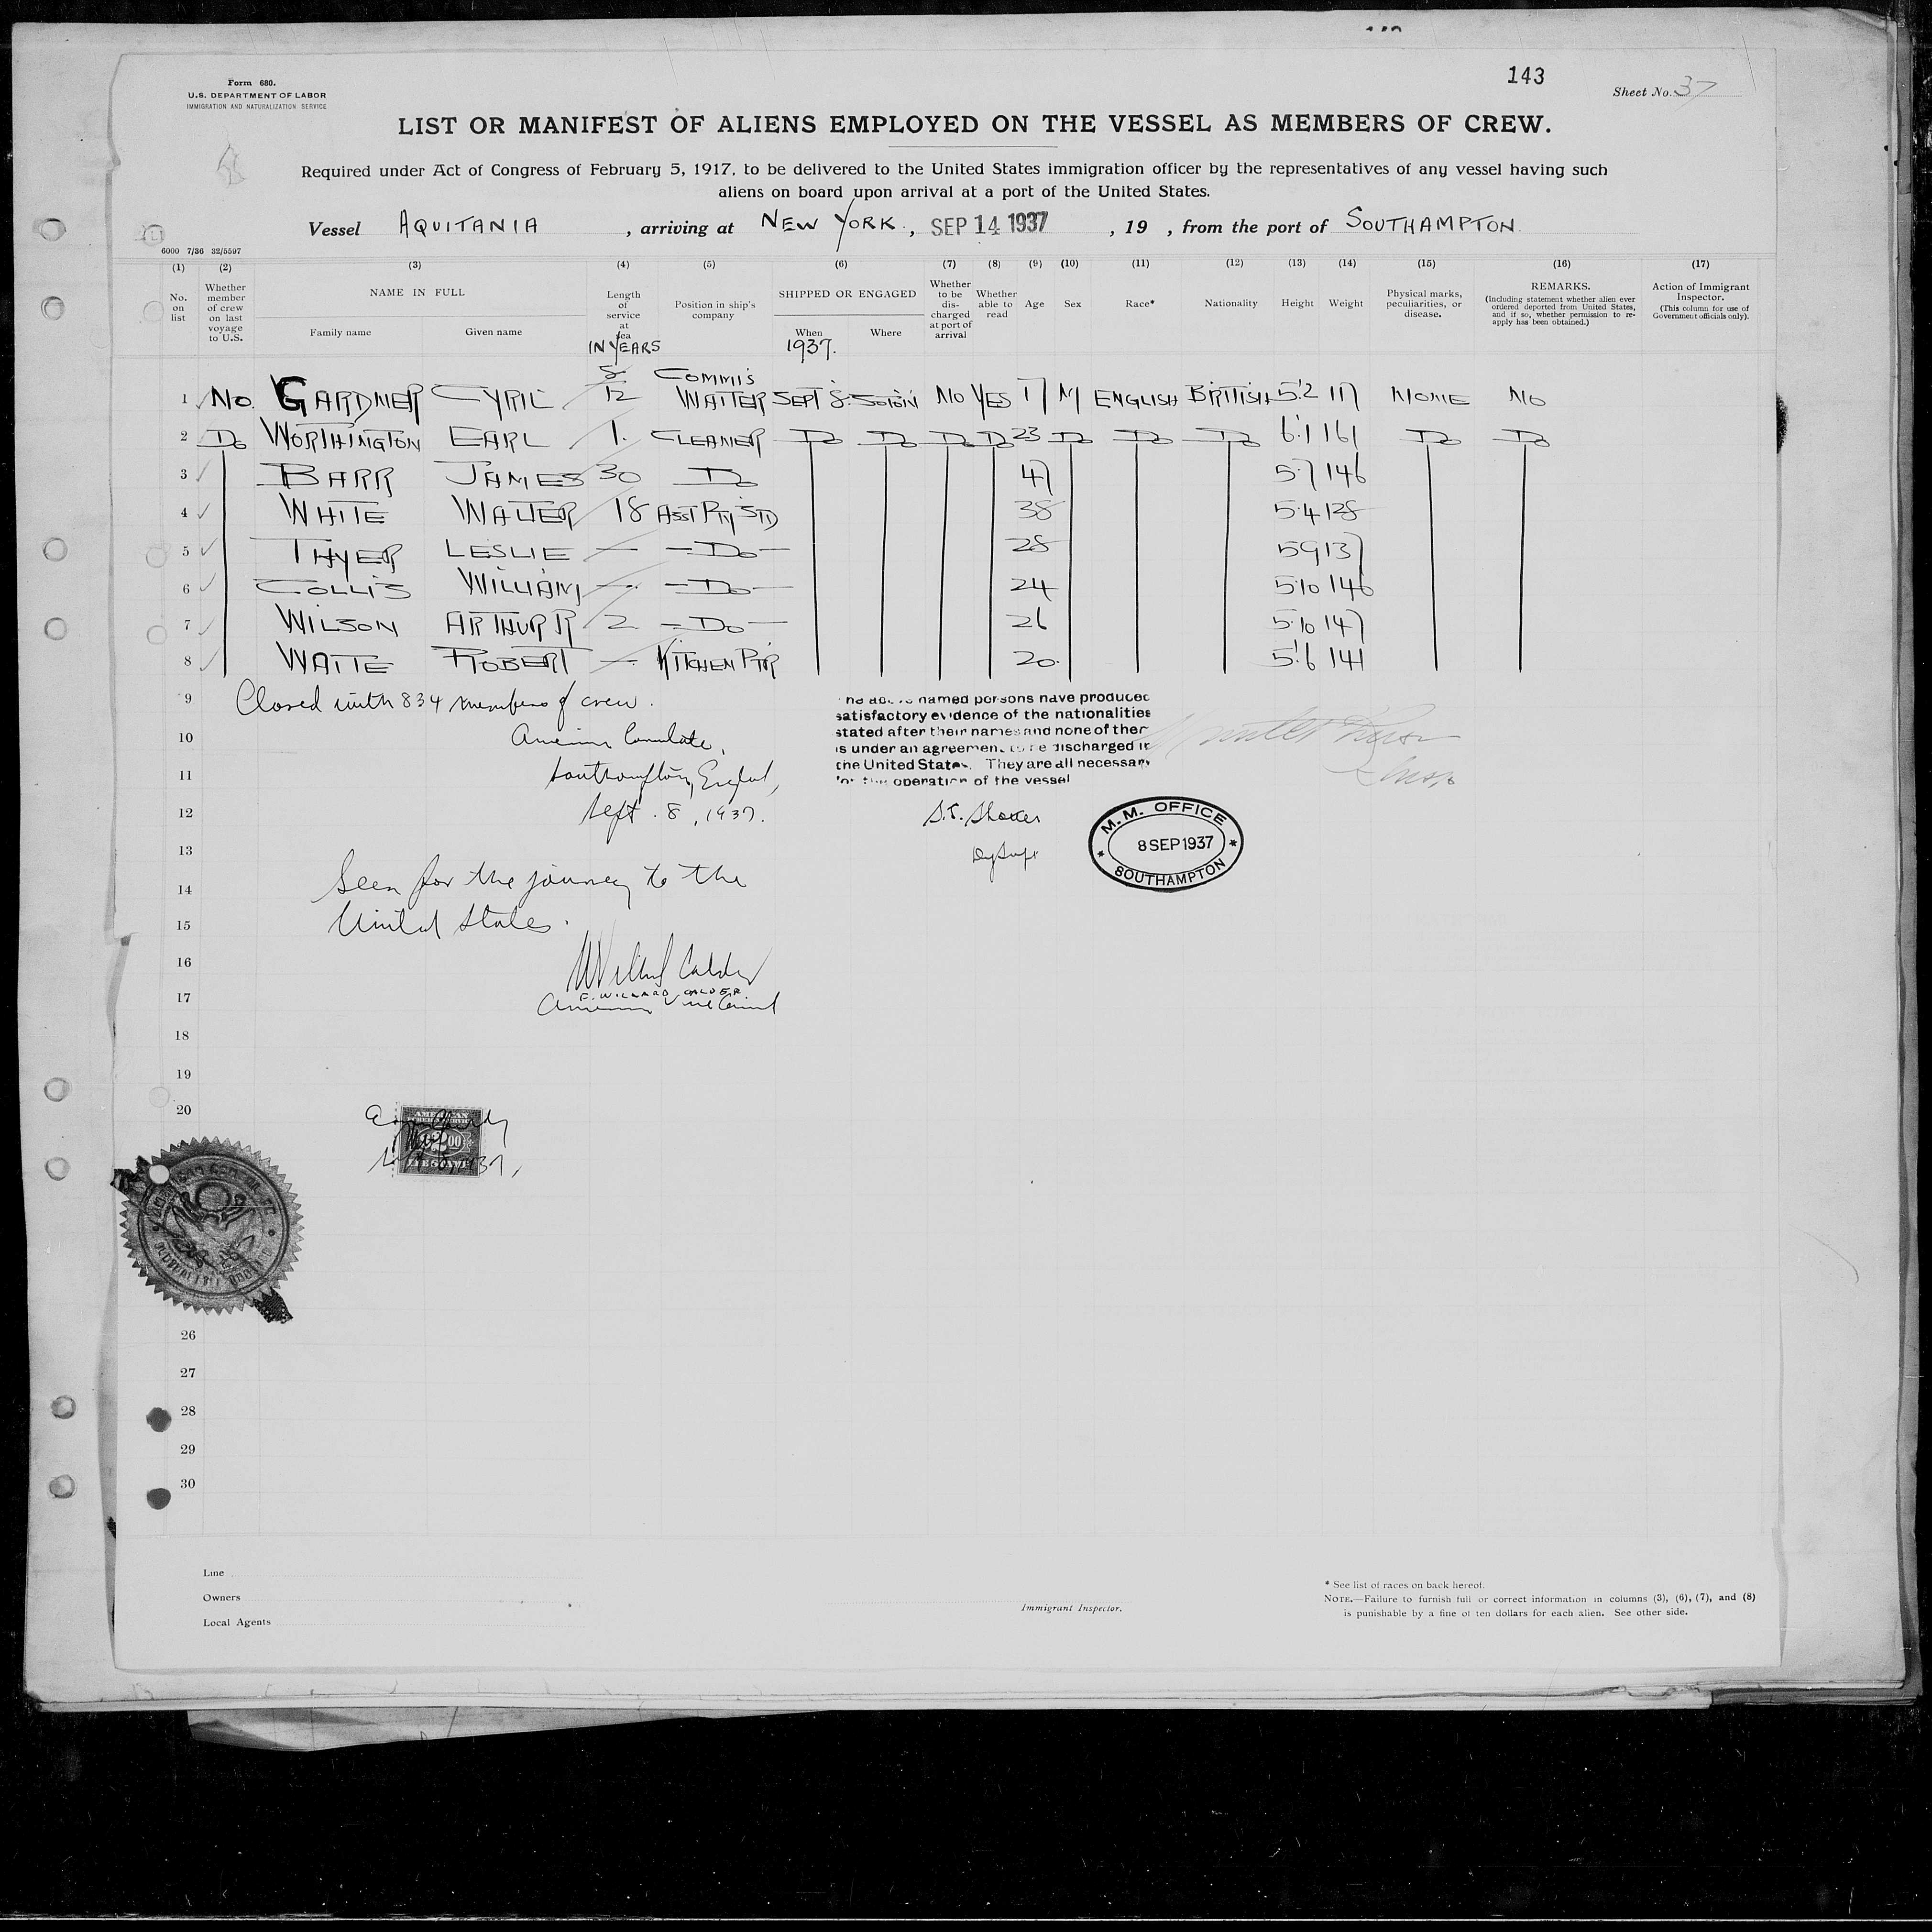 143
Form 680.
U.S. DEPARTMENT OF LABOR
IMMIGRATION AND NATURALIZATION SERVICE
Sheet No. 37
LIST OR MANIFEST OF ALIENS EMPLOYED ON THE VESSEL AS MEMBERS OF CREW.
Required under Act of Congress of February 5, 1917, to be delivered to the United States immigration officer by the representatives of any vessel having such
aliens on board upon arrival at a port of the United States.
Vessel AQUITANIA, arriving at NEW YORK, SEP 14 1937, 19 , from the port of SOUTHAMPTON
6000 7/36 32/5597
(1) (2) (3) (4) (5) (6) (7) (8) (9) (10) (11) (12) (13) (14) (15) (16) (17)
No. on list
Whether member of crew on last voyage to U.S.
NAME IN FULL
Family name Given name
Length of service at sea
IN YEARS
Position in ship's company
SHIPPED OR ENGAGED
When Where
1937.
Whether to be discharged at port of arrival
Whether able to read
Age
Sex
Race*
Nationality
Height
Weight
Physical marks, peculiarities, or disease.
REMARKS.
(Including statement whether alien ever ordered deported from United States, and if so, whether permission to reapply has been obtained.)
Action of Immigrant Inspector.
(This column for use of Government officials only).
1 No. GARDNER CYRIL 8/12 COMMIS WAITER SEPT 8. SOTON NO YES 17 M ENGLISH BRITISH 5.2 117 NONE NO
2 Do WORTHINGTON EARL 1. CLEANER Do Do Do Do 23 Do Do Do 6.1 161 Do Do
3 BARR JAMES 30 Do 47 5.7 146
4 WHITE WALTER 18 ASST PTY STD 38 5.4 128
5 THYER LESLIE — — Do — 28 5 9 137
6 COLLIS WILLIAM — — Do — 24 5 10 146
7 WILSON ARTHUR R 2 — Do — 26 5.10 147
8 WAITE ROBERT — KITCHEN PTR 20. 5.6 141
9 Closed with 834 members of crew.
10 American Consulate,
11 Southampton, England,
12 Sept. 8, 1937.
The above named persons have produced
satisfactory evidence of the nationalities
stated after their names and none of them
is under an agreement to be discharged in
the United States. They are all necessary
for the operation of the vessel
M.M. OFFICE
8 SEP 1937
SOUTHAMPTON
13
14 Seen for the journey to the
15 United States.
16
F. WILLARD CALDER
17 American Vice Consul
18
19
20
AMERICAN
2.00
FEE STAMP
26
27
28
29
30
Line
Owners
Local Agents
Immigrant Inspector.
* See list of races on back hereof.
NOTE.—Failure to furnish full or correct information in columns (3), (6), (7), and (8)
is punishable by a fine of ten dollars for each alien. See other side.